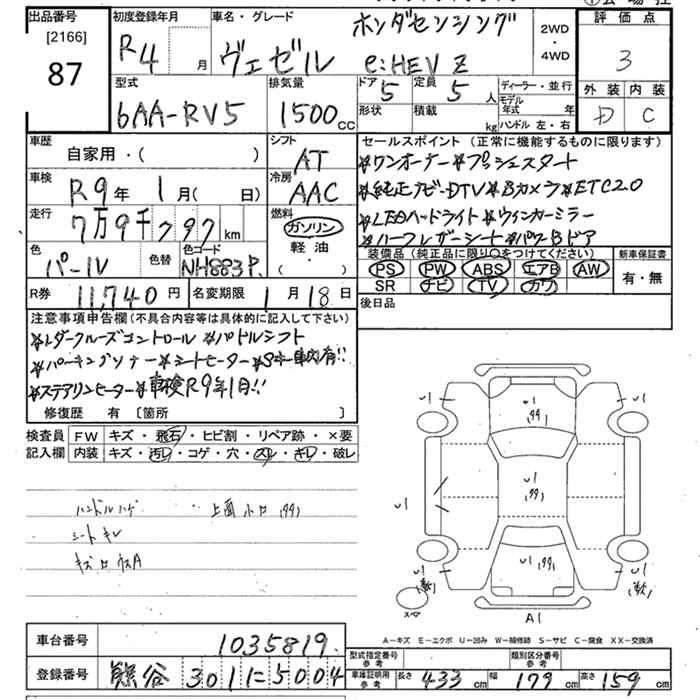 出品番号 初度登録年月 車名・グレード 評価点
[2166] R4 月 ヴェゼル ホンダセンシング e:HEV Z 2WD・4WD 3
87
型式 排気量 ドア 5 定員 5人 ディーラー・並行 外装 内装
6AA-RV5 1500cc 形状 積載 kg モデル年式 年 ハンドル 左・右 D C
車歴 シフト セールスポイント(正常に機能するものに限ります)
自家用・( ) AT *ワンオーナー*プッシュスタート
車検 冷房 *純正ナビ・DTV*Bカメラ*ETC2.0
R9年 1月( 日) AAC *LEDハードライト*ウィンカーミラー
走行 燃料 *ハーフレザーシート*パワBドア
7万9千797km ガソリン
色 色替 色コード 軽油・ 装備品(純正品に限り○をつけてください) 新車保証書
パール NH883P. ・( ) PS PW ABS エアB AW 有・無
SR ナビ TV カワ
R券 11,740円 名変期限 1月18日 後日品
注意事項申告欄(不具合内容等は具体的に記入して下さい)
*レダークルーズコントロール *パドルシフト
*パーキングソナー*シートヒーター*Sキー車内有!!
*ステアリンヒーター*車検R9年1月!!
修復歴 有 [箇所 ]
検査員 FW キズ・飛石・ヒビ割・リペア跡・×要
記入欄 内装 キズ・汚レ・コゲ・穴・スレ・キレ・破レ
ハンドルハゲ 上面小キロ
シートキレ
キズ
A1
A-キズ E-エクボ U-凹み W-補修跡 S-サビ C-腐食 XX-交換済
車台番号 1035819.
型式指定番号 参考 類別区分番号 参考
登録番号 熊谷 301 に 5004 車庫証明用 参考 長さ 433cm 幅 179cm 高さ 159cm